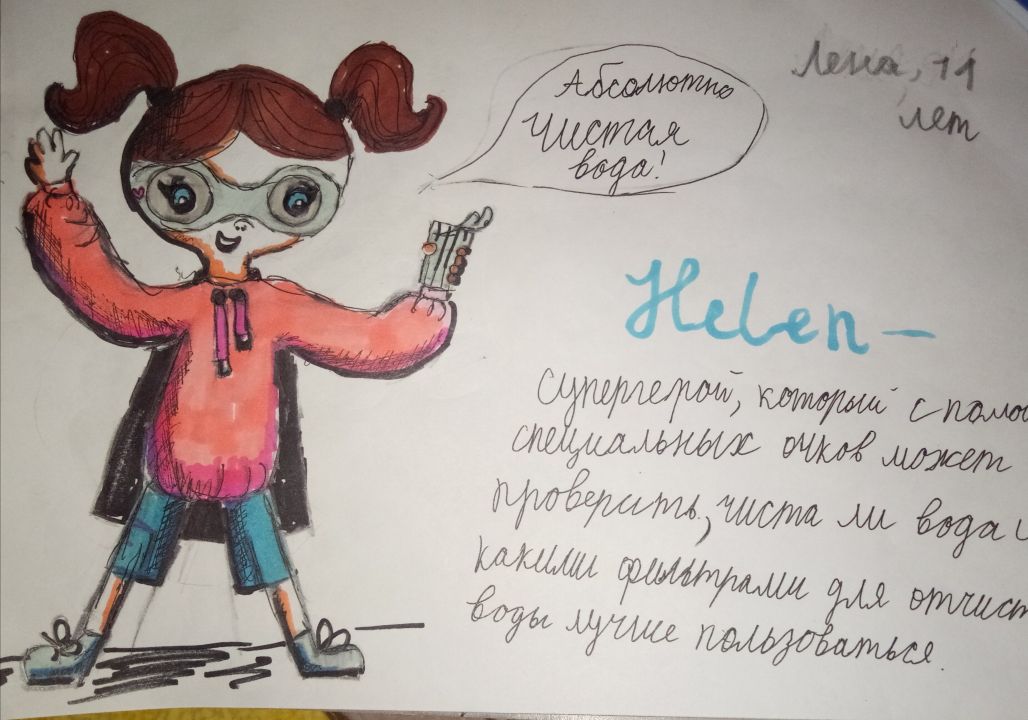 Абсолютно
чистая
вода!
Лена, 11
лет
Helen —
Супергерой, который с помо
специальных очков может
проверить, чиста ли вода и
какими фильтрами для отчист
воды лучше пользоваться.